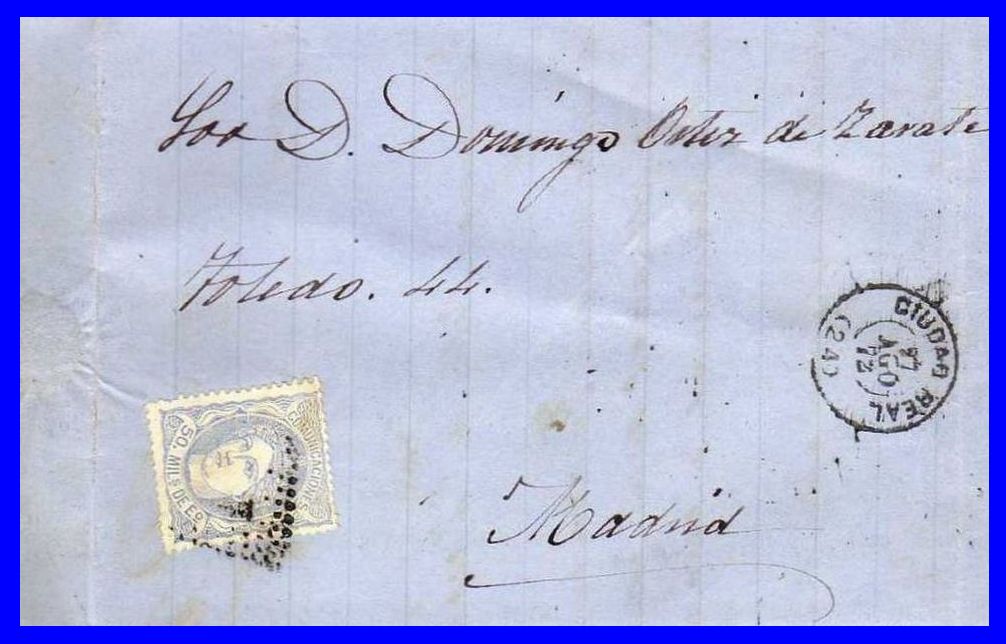 Sor D. Domingo Ortiz de Zarate
Toledo. 44.
CIUDAD REAL
AGO
72
(24)
COMUNICACIONES
50. MILs DE Eo.
Madrid